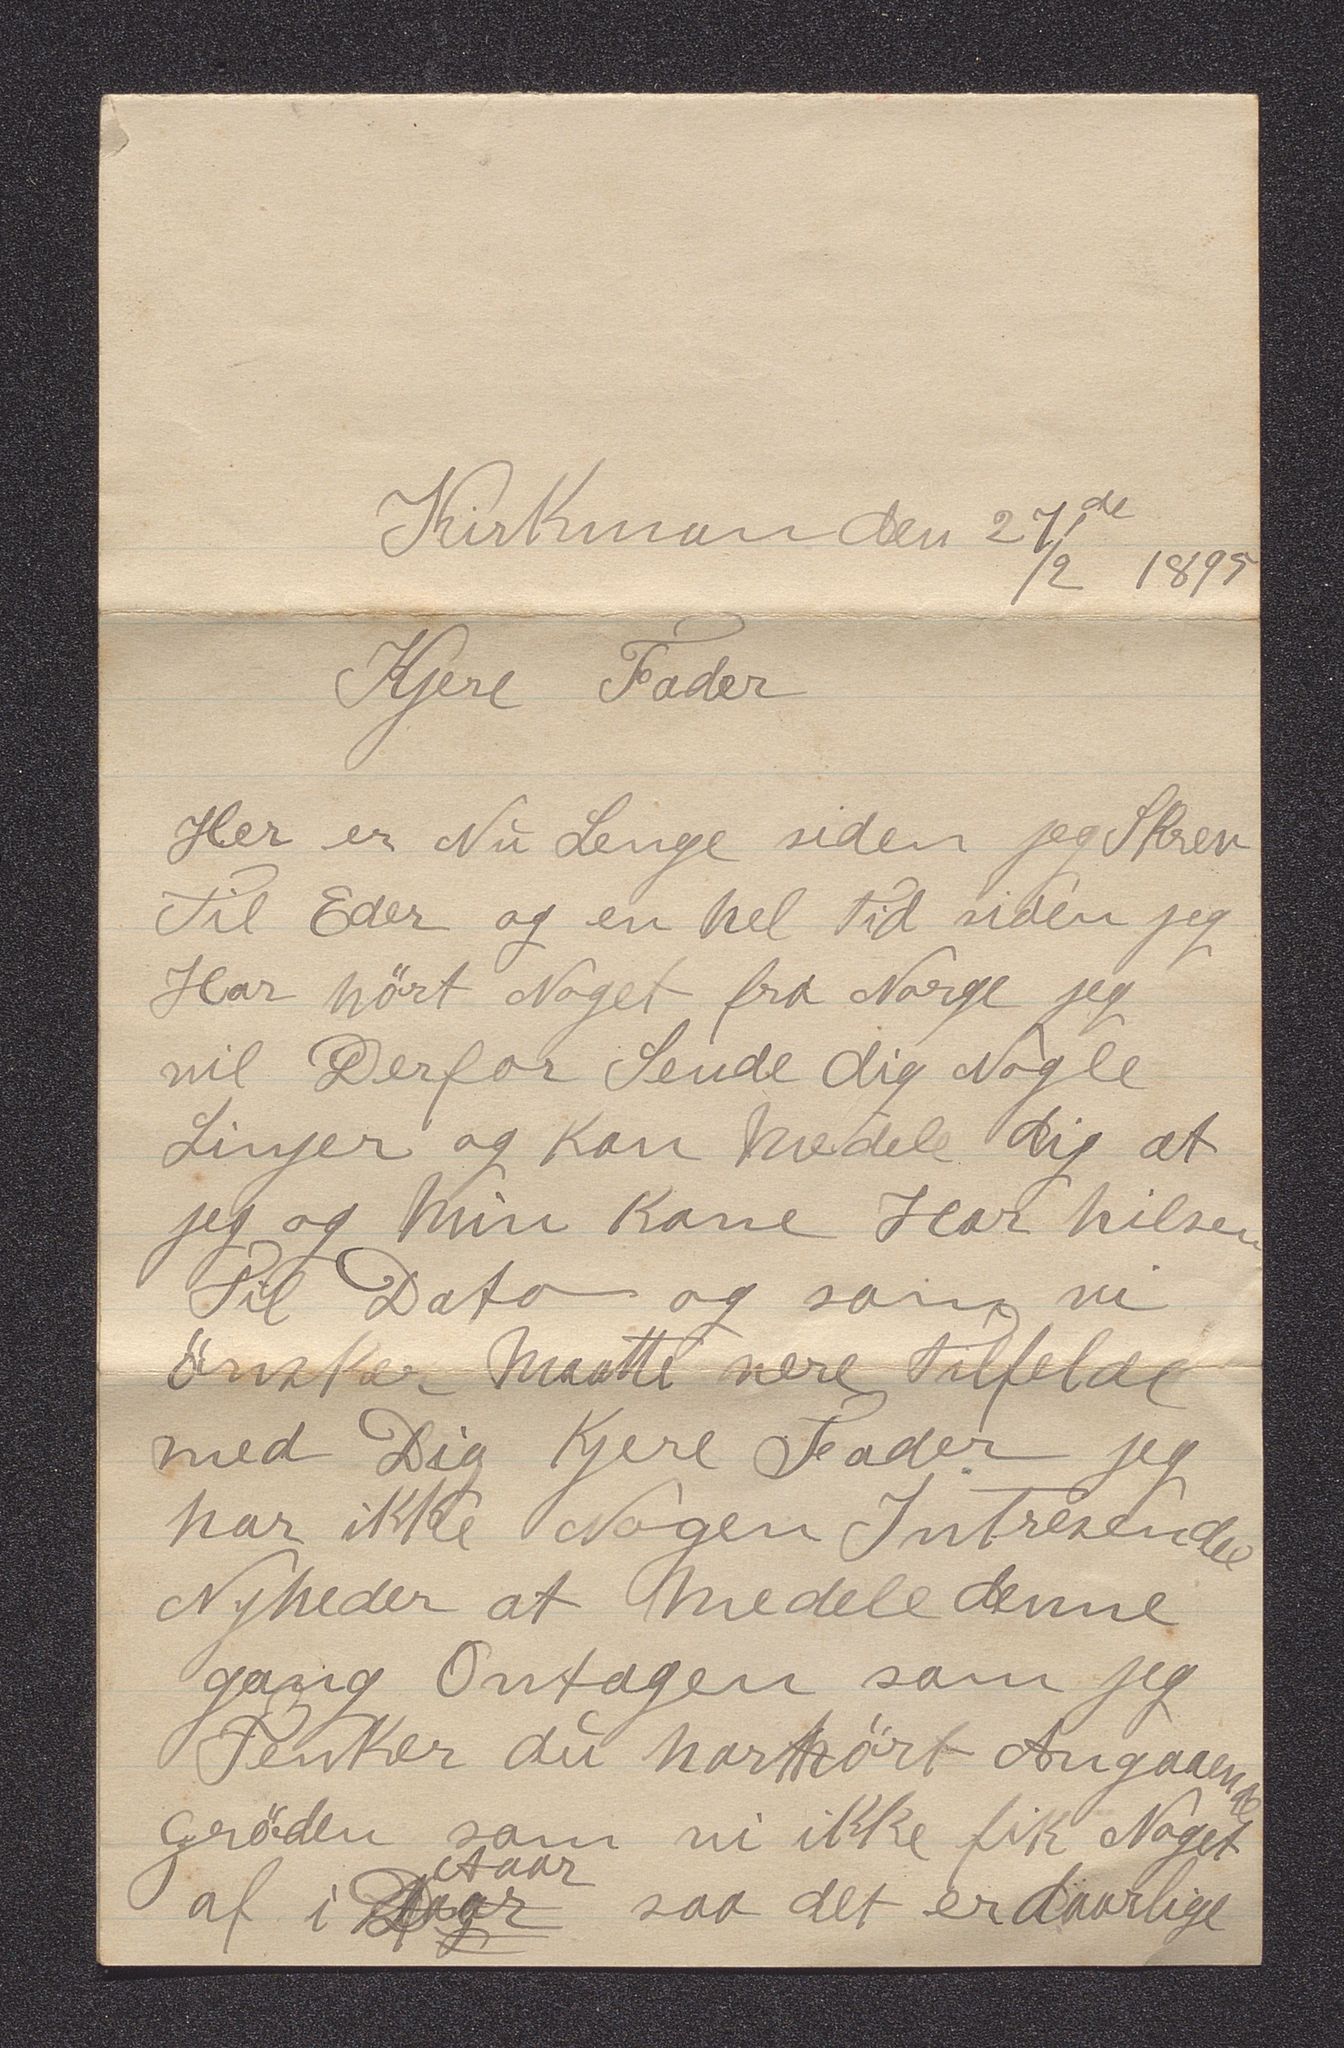 Kirkman den 27de
/2 1895
Kjere Fader
Her er Nu Lenge siden jeg Skrev
Til Eder og en hel tid siden jeg
Har hört Noget fra Norge jeg
vil Derfor Sende dig Nogle
Linjer og kan Medele dig at
jeg og Min Kone Har hilsen
Til Dato og som vi
önsker Maatte vere tilfelde
med Dig Kjere Fader jeg
har ikke Nogen Intresende
Nyheder at Medele denne
gang Ontagen som jeg
Tenker du har hört Angaaende
gröden som vi ikke fik Noget
Aaar
af i saa det er daarlige